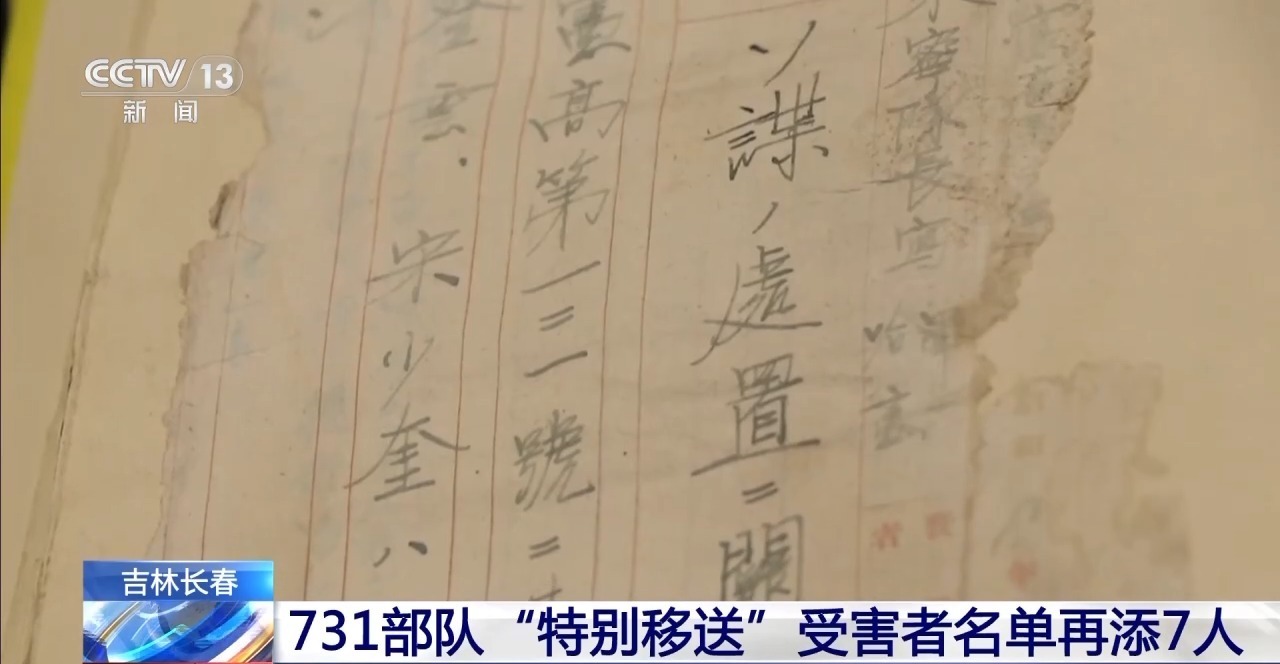 CCTV 13
新闻
寧隊長写
ソ諜ノ處置ニ關
憲高第一二一號ニ
登雲．宋少奎ハ
吉林长春
731部队“特别移送”受害者名单再添7人